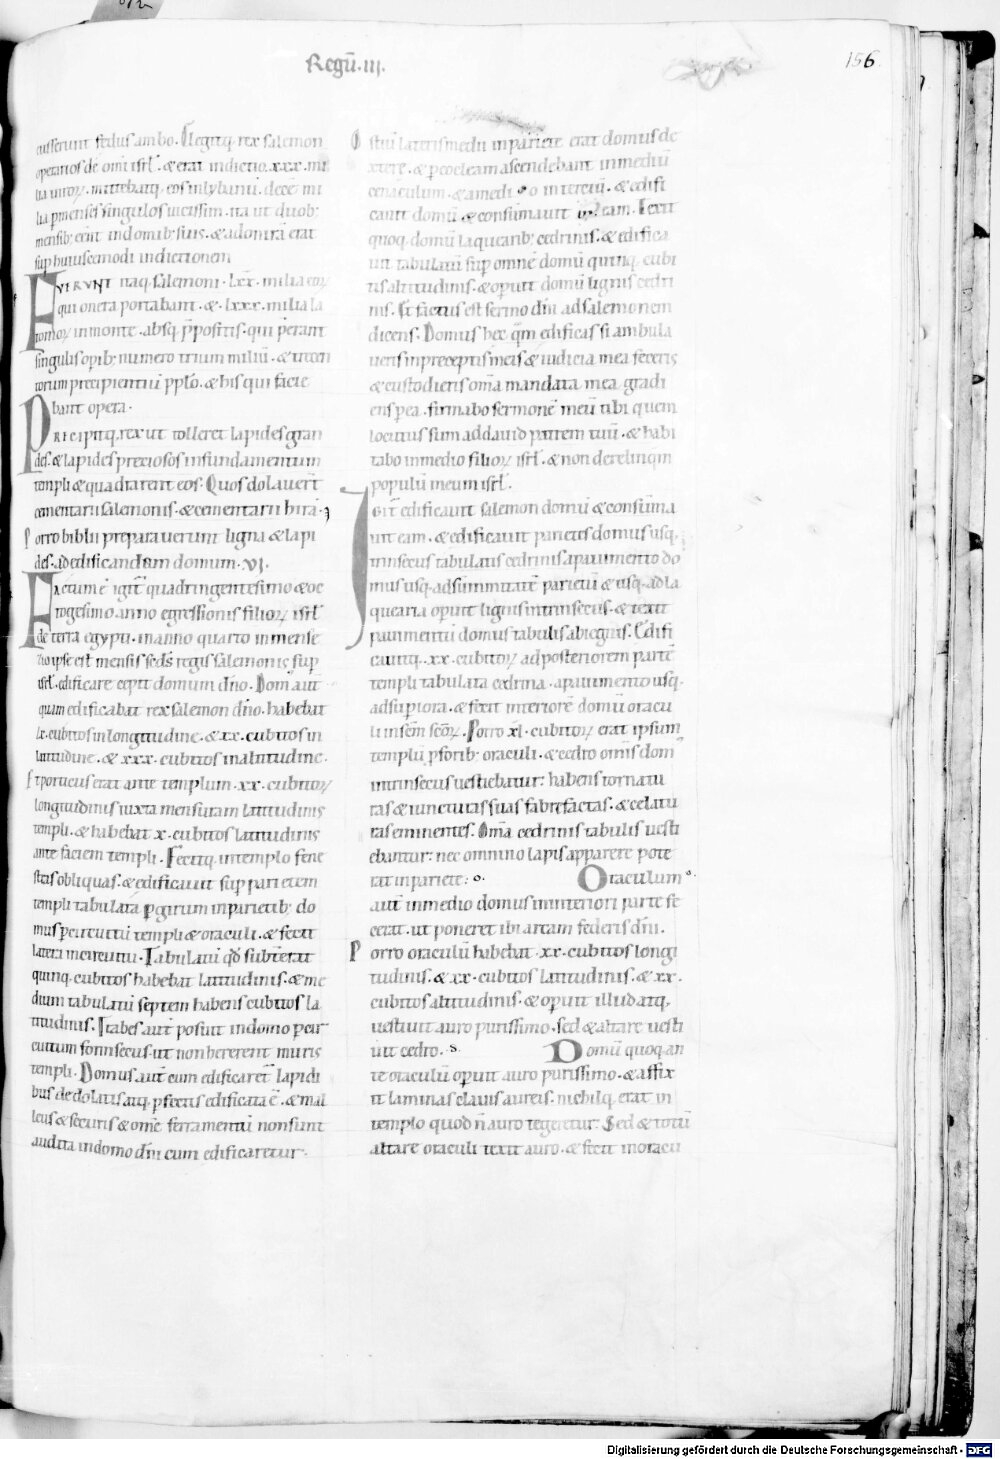 Regū .iii.
156
cusserunt fedus ambo. Elegitq; rex salemon
operarios de om̄i isrl̄. & erat indictio .xxx. mi
lia uiroꝝ. mittebatq; eos in lybanū. dece mi
lia p̄ menses singulos uicissim. ita ut duob;
mensib; eēnt in domib; suis. & adonirā erat
sup huiuscemodi indictionem
FUERUNT itaq; salemoni .lxx. milia eoꝝ
qui onera portabant. & .lxxx. milia la
tomoꝝ in monte. absq; p̄positis. qui p̄erant
singulis opib; numero trium miliū. & trecen
torum precipientiū pplo. & his qui facie
bant opera.
PRECIPITq; rex ut tolleret lapides gran
des. & lapides preciosos in fundamentum
templi & quadrarent eos. Quos dolauert̄
cementarii salemonis. & cementarii hirā.
Porro biblii preparauerunt ligna & lapi
des. ad edificandum domum .VI.
Factum ē igit̄ quadringentesimo & oc
togesimo anno egressionis filioꝝ isrl̄
de terra egypti. in anno quarto in mense
zio ipse est mensis scds̄ regis salemonis sup
isrl̄. edificare cepit domum dn̄o. Dom' aut̄
quam edificabat rex salemon dn̄o. habebat
lx. cubitos in longitudine. & xx. cubitos in
latitudine. & xxx. cubitos in altitudine.
Et porticus erat ante templum .xx. cubitoꝝ
longitudinis iuxta mensuram latitudinis
templi. & habebat x. cubitos latitudinis
ante faciem templi. Fecitq; in templo fene
stras obliquas. & edificauit sup parietem
templi tabulata p girum in parietib; do
mus p circuitū templi & oraculi. & fecit
latera in circuitu. Tabulatū qd̄ subt̄erat
quinq; cubitos habebat latitudinis. & me
dium tabulatū septem habens cubitos la
titudinis. Trabes aut̄ posuit in domo p cir
cuitum forinsecus. ut non hererent muris
templi. Domus aut̄ cum edificaret̄ lapidi
bus dedolatis atq; pfectis edificata ē. & mal
leus & securis & om̄e ferramentū non sunt
audita in domo dn̄i cum edificaretur.
Ostiū lateris medii in pariete erat domus de
xtere. & p cocleam ascendebant in mediū
cenaculum. & a medio in terciū. & edifi
cauit domū & consūmauit eam. Texit
quoq; domū laquearib; cedrinis. & edifica
uit tabulatū sup omnē domū quinq; cubi
tis altitudinis. & opuit domū lignis cedri
nis. Et factus est sermo dn̄i ad salemonem
dicens. Domus hec qm̄ edificas si ambula
ueris in preceptis meis & iudicia mea feceris
& custodieris om̄a mandata mea gradi
ens p ea. firmabo sermonē meū tibi quem
locutus sum ad dauid patrem tuū. & habi
tabo in medio filioꝝ isrl̄. & non derelinqm̄
populū meum isrl̄.
Igit̄ edificauit salemon domū & consūma
uit eam. & edificauit parietes domus
intrinsecus tabulatis cedrinis. a pauimento do
mus usq; ad sūmitatē parietū & usq; ad la
quearia opuit lignis intrinsecus. & texit
pauimentū domus tabulis abiegnis. Edifi
cauitq; .xx. cubitoꝝ ad posteriorem partē
templi tabulata cedrina. a pauimento usq;
ad supiora. & fecit interiorē domū oracu
li in scm̄ scoꝝ. Porro xl. cubitoꝝ erat ipsum
templū p forib; oraculi. & cedro omīs dom'
intrinsecus uestiebatur: habens tornatu
ras & iuncturas suas fabrefactas. & celatu
ras eminentes. Om̄a cedrinis tabulis uesti
ebantur: nec omnino lapis apparere pote
rat in pariete: o. Oraculum
aut̄ in medio domus in interiori parte fe
cerat. ut poneret ibi arcam federis dn̄i.
Porro oraculū habebat .xx. cubitos longi
tudinis. & .xx. cubitos latitudinis. & .xx.
cubitos altitudinis. & opuit illud atq;
uestiuit auro purissimo. sed & altare uesti
uit cedro. s. Domū quoq; an
te oraculū opuit auro purissimo. & affix
it laminas clauis aureis. nichilq; erat in
templo quod n̄ auro tegeretur. Sed & totū
altare oraculi texit auro. & fecit in oracu
Digitalisierung gefördert durch die Deutsche Forschungsgemeinschaft - DFG